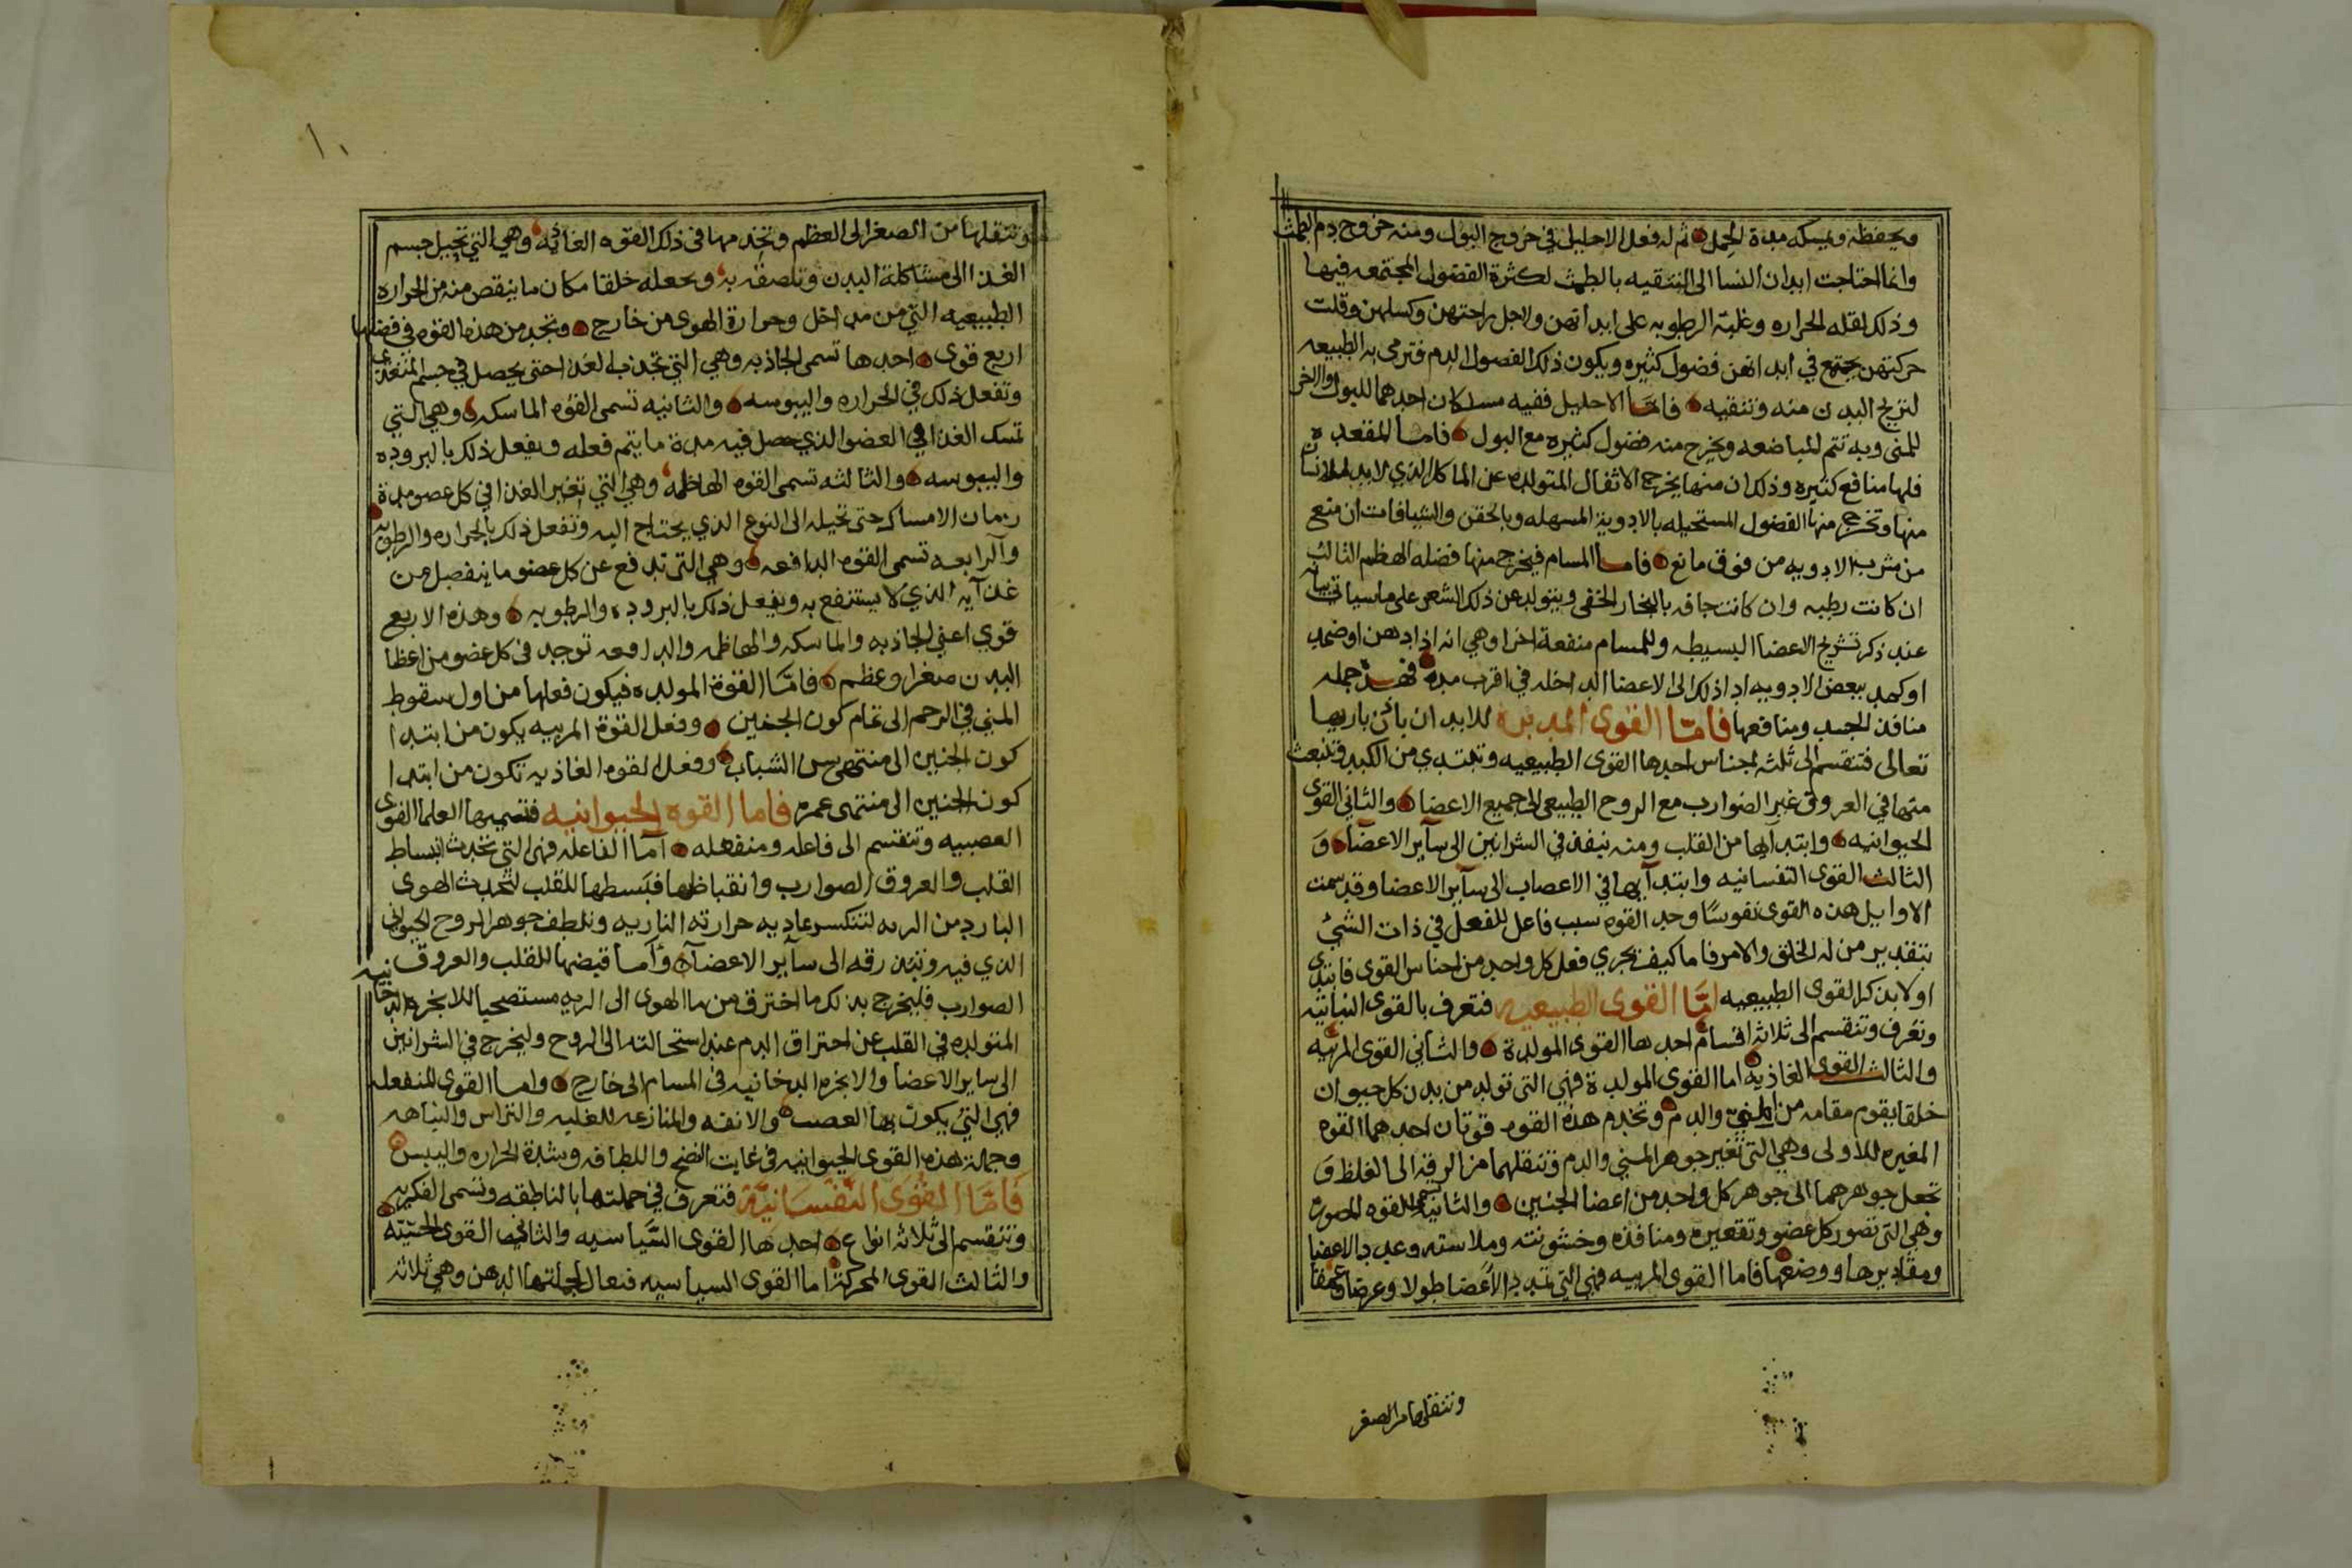 وتحفظه وتمسكه مدة الحمل ثم له فعل الاحليل في خروج البول ومنه خروج دم الطمث
وانما احتاجت ابدان النسا الى التنقيه بالطمث لكثرة الفضول المجتمعه فيها
وذلك لقله الحراره وغلبة الرطوبه على ابدانهن ولاجل راحتهن وكسلهن وقلت
حركتهن يجتمع في ابدانهن فضول كثيره ويكون ذلك الفضول الدم فترمى به الطبيعه
لتريح البدن منه وتنقيه فامّا الاحليل ففيه مسلكان احدهما للبول والاخر
للمنى وبه تتم المباضعه ويخرج منه فضول كثيره مع البول فاما المقعده
فلها منافع كثيره وذلك ان منها يخرج الاثفال المتولده عن الماكل الذي لابد للانسان
منها وتخرج منها الفضول المستحيله بالادوية المسهله وبالحقن والشيافات ان منع
من شرب الادويه من فوق مانع فاما المسام فيخرج منها فضله الهظم الثالث
ان كانت رطبه وان كانت جافه بالبخار الخفى ويتولد عن ذلك الشعر على ما سياتي بيانه
عند ذكر تشريح الاعضا البسيطه وللمسام منفعة اخرا وهي انه اذا دهن او ضمد
او كمد ببعض الادويه ادا ذلك الى الاعضا الداخله في اقرب مدة فهذه جمله
منافذ الجسد ومنافعها فامّا القوى المدبره للابدان باذن باريها
تعالى فتنقسم الى ثلثه اجناس احدها القوى الطبيعيه وتبتدي من الكبد وتنبعث
منها في العروق غير الضوارب مع الروح الطبيعي الى جميع الاعضا والثاني القوى
الحيوانيه وابتداها من القلب ومنه ينفذ في الشرايين الى سآير الاعضا وَ
الثالث القوى النفسانيه وابتدآيها في الاعصاب الى سآير الاعضا وقد سمت
الاوايل هذه القوى نفوسًا وحد القوه سبب فاعل للفعل في ذات الشئ
بتقدير من له الخلق والامر فاما كيف تجري فعل كل واحد من اجناس القوى فابتدى
اولا بذكر القوى الطبيعيه امّا القوى الطبيعيه فتعرف بالقوى النباتيه
وتعرف وتنقسم الى ثلاثه اقسام احدها القوى المولدة والثاني القوى المربيه
والثالث القوى الغاذيه اما القوى المولدة فهي التى تولد من بدن كل حيوان
خلقا يقوم مقامه من المنيّ والدم وتخدم هذه القوه قوتان احدهما القوه
المغيره للاولى وهي التى تغير جوهر المني والدم وتنقلهما من الرقه الى الغلظ وَ
تجعل جوهرهما الى جوهر كل واحد من اعضا الجنين والثانيه تسمى القوه المصوره
وهي التى تصور كل عضو وتقعيره ومنافذه وخشونته وملاسته وعدد الاعضا
ومقاديرها ووضعها فاما القوى المربيه فهي التي تمدد الاعضا طولا وعرضا وعمقا
وتنقلها من الصغر
١٠
وتنقلها من الصغر الى العظم وتخدمها في ذلك القوه الغاذيه وهي التي تحيل جسم
الغذا الى مشاكلة البدن وتلصقه به وتجعله خلقا مكان ما ينقص منه من الحراره
الطبيعيه التي من داخل وحرارة الهوى من خارج وتخدم هذه القوه في فضلها
اربع قوى احدها تسمى الجاذبه وهي التي تجذب الغذا حتى يحصل في جسم المتغذى
وتفعل ذلك في الحراره واليبوسه والثانيه تسمى القوه الماسكه وهي التي
تمسك الغذا في العضو الذي حصل فيه مدة ما يتم فعله ويفعل ذلك بالبروده
واليبوسه والثالثه تسمى القوه الهاظمه وهي التي تغير الغذا في كل عضو مدة
زمان الامساك حتى تحيله الى النوع الذي يحتاج اليه وتفعل ذلك بالحراره والرطوبه
والرابعه تسمى القوه الدافعه وهي التى تدفع عن كل عضو ما ينفصل من
غذآيه الذي لا يستنفع به ويفعل ذلك بالبروده والرطوبه وهذه الاربع
قوى اعني الجاذبه والماسكه والهاظمه والدافعه توجد في كل عضو من اعظا
البدن صغر او عظم فامّا القوة المولده فيكون فعلها من اول سقوط
المني في الرحم الى تمام كون الجنين وفعل القوة المربيه يكون من ابتدا
كون الجنين الى منتهى سن الشباب وفعل القوه الغاذيه تكون من ابتدا
كون الجنين الى منتهى عمره فاما القوه الحيوانيه فتسميها العلما القوى
العصبيه وتنقسم الى فاعله ومنفعله آما الفاعله فهي التي تحدث انبساط
القلب والعروق الصوارب وانقباظها فبسطها للقلب لتجدب الهوى
البارد من الريه لتنكسر عاديه حرارته الناريه وتلطف جوهر الروح الحيواني
الذي فيه وتنذرقه الى سآير الاعضآء وأما قبضها للقلب والعروق
الصوارب فليخرج بذلك ما احترق من ما الهوى الى الريه مستصحبا للابخره الدخانيه
المتولده في القلب عن احتراق الدم عند استحالته الى الروح وليخرج في الشرايين
الى ساير الاعضا والابخره الدخانيه في المسام الى خارج واما القوى المنفعله
فهي التي يكون بها العصب والانفه والمنازعه للغلبه والتراس والنباهه
وجملة هذه القوى الحيوانيه في غايت النضج واللطافه وشدة الحراره واليبس
فَامّا القوى النَّفْسَانيَّة فتعرف في جملتها بالناطقه وتسمى الفكريه
وتنقسم الى ثلاثه انواع احدها القوى السّياسيه والثانى القوى الحسّيّه
والثالث القوى المحركة اما القوى السياسيه فنعال لجملتها الدهن وهي ثلاثه